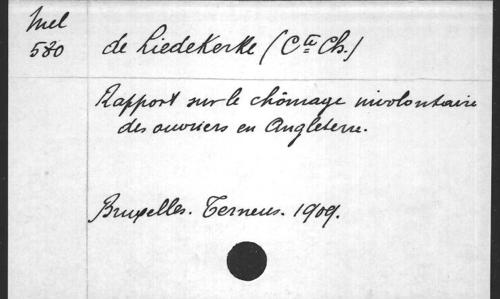 Mel
580
de Liedekerke (Cte Ch.)
Rapport sur le chômage involontaire
des ouvriers en Angleterre.
Bruxelles. Terneus. 1909.